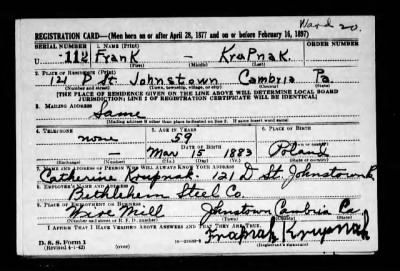 Ward 20.
REGISTRATION CARD—(Men born on or after April 28, 1877 and on or before February 16, 1897)
SERIAL NUMBER 1. NAME (Print) ORDER NUMBER
U -112 Frank - Krapnak.
(First) (Middle) (Last)
2. PLACE OF RESIDENCE (Print)
121 D St. Johnstown, Cambria Pa.
(Number and street) (Town, township, village, or city) (County) (State)
[THE PLACE OF RESIDENCE GIVEN ON THE LINE ABOVE WILL DETERMINE LOCAL BOARD
JURISDICTION; LINE 2 OF REGISTRATION CERTIFICATE WILL BE IDENTICAL]
3. MAILING ADDRESS
Same
[Mailing address if other than place indicated on line 2. If same insert word same]
4. TELEPHONE 5. AGE IN YEARS 6. PLACE OF BIRTH
none 59
DATE OF BIRTH Poland
- Mar. 15 1883
(Exchange) (Number) (Mo.) (Day) (Yr.) (State or country)
7. NAME AND ADDRESS OF PERSON WHO WILL ALWAYS KNOW YOUR ADDRESS
Catherine Krupnak. 121 D St. Johnstown
8. EMPLOYER'S NAME AND ADDRESS
Bethlehem Steel Co.
9. PLACE OF EMPLOYMENT OR BUSINESS
Wire Mill Johnstown Cambria Pa
(Number and street or R. F. D. number) (Town) (County) (State)
I AFFIRM THAT I HAVE VERIFIED ABOVE ANSWERS AND THAT THEY ARE TRUE.
D. S. S. Form 1
(Revised 4-1-42) (over) (Registrant's signature)